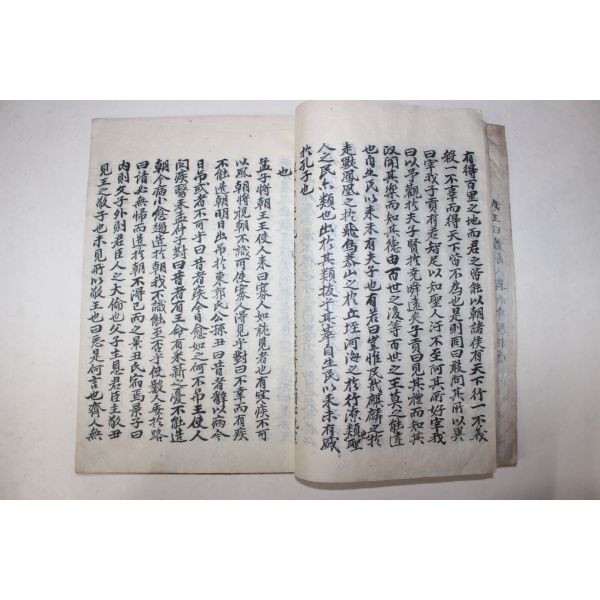 有得百里之地而君之皆能以朝諸侯有天下行一不義
殺一不辜而得天下皆不為也是則同曰敢問其所以異
曰宰我子貢有若智足以知聖人汙不至阿其所好宰我
曰以予觀於夫子賢於堯舜遠矣子貢曰見其禮而知其
政聞其樂而知其德由百世之後等百世之王莫之能違
也自生民以来未有夫子也有若曰豈惟民哉麒麟之於
走獸鳳凰之於飛鳥泰山之於丘垤河海之於行潦類聖
人之民亦類也出於其類拔乎其萃自生民以来未有盛
於孔子也
也
孟子將朝王王使人来曰寡人如就見者也有寒疾不可
以風朝將視朝不識可使寡人得見乎對曰不幸而有疾
不能造朝明日出吊於東郭氏公孫丑曰昔者辭以病今
日吊或者不可乎曰昔者疾今日愈如之何不吊王使人
問疾醫来孟仲子對曰昔者有王命有采薪之憂不能造
朝今病小愈趨造於朝我不識能至否乎使數人要於路
曰請必無歸而造於朝不得已而之景丑氏宿焉景子曰
內則父子外則君臣人之大倫也父子主恩君臣主敬丑
見王之敬子也未見所以敬王也曰惡是何言也齊人無